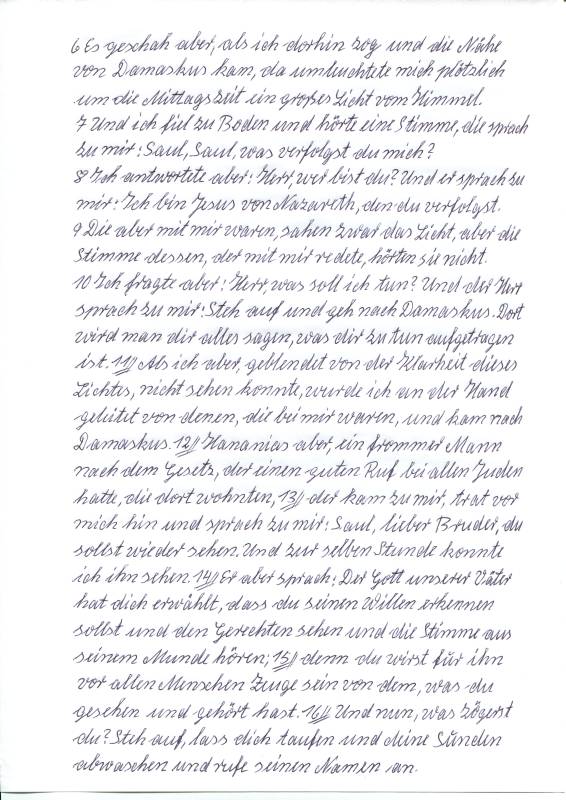 6 Es geschah aber, als ich dorhin zog und die Nähe
von Damaskus kam, da umleuchtete mich plötzlich
um die Mittagszeit ein großes Licht vom Himmel.
7 Und ich fiel zu Boden und hörte eine Stimme, die sprach
zu mir: Saul, Saul, was verfolgst du mich?
8 Ich antwortete aber: Herr, wer bist du? Und er sprach zu
mir: Ich bin Jesus von Nazareth, den du verfolgst.
9 Die aber mit mir waren, sahen zwar das Licht, aber die
Stimme dessen, der mit mir redete, hörten sie nicht.
10 Ich fragte aber: Herr, was soll ich tun? Und der Herr
sprach zu mir: Steh auf und geh nach Damaskus. Dort
wird man dir alles sagen, was dir zu tun aufgetragen
ist. 11// Als ich aber, geblendet von der Klarheit dieses
Lichtes, nicht sehen konnte, wurde ich an der Hand
geleitet von denen, die bei mir waren, und kam nach
Damaskus. 12// Hananias aber, ein frommer Mann
nach dem Gesetz, der einen guten Ruf bei allen Juden
hatte, die dort wohnten, 13// der kam zu mir, trat vor
mich hin und sprach zu mir: Saul, lieber Bruder, du
sollst wieder sehen. Und zur selben Stunde konnte
ich ihn sehen. 14// Er aber sprach: Der Gott unserer Väter
hat dich erwählt, dass du seinen Willen erkennen
sollst und den Gerechten sehen und die Stimme aus
seinem Munde hören; 15// denn du wirst für ihn
vor allen Menschen Zeuge sein von dem, was du
gesehen und gehört hast. 16// Und nun, was zögerst
du? Steh auf, lass dich taufen und deine Sünden
abwaschen und rufe seinen Namen an.